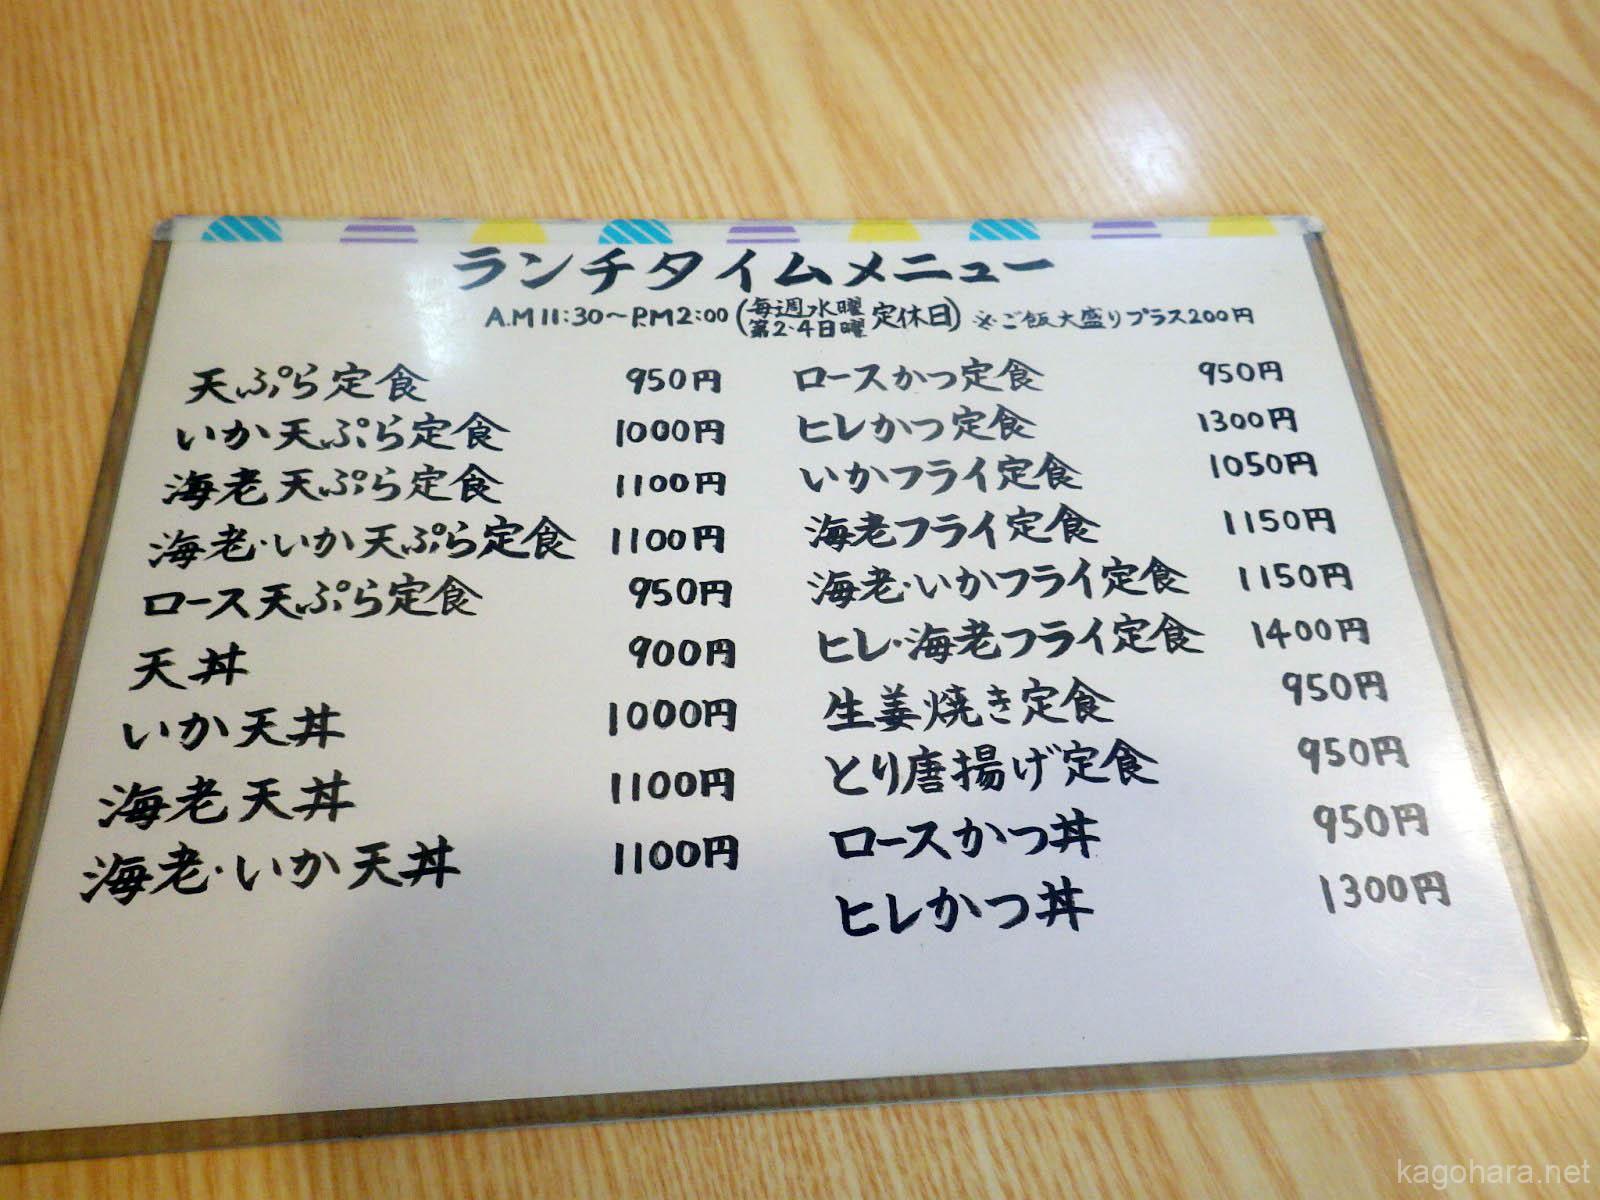 ランチタイムメニュー
A.M 11:30～P.M 2:00 (毎週水曜 第2・4日曜 定休日) ※ご飯大盛りプラス200円
天ぷら定食 950円
いか天ぷら定食 1000円
海老天ぷら定食 1100円
海老・いか天ぷら定食 1100円
ロース天ぷら定食 950円
天丼 900円
いか天丼 1000円
海老天丼 1100円
海老・いか天丼 1100円
ロースかつ定食 950円
ヒレかつ定食 1300円
いかフライ定食 1050円
海老フライ定食 1150円
海老・いかフライ定食 1150円
ヒレ・海老フライ定食 1400円
生姜焼き定食 950円
とり唐揚げ定食 950円
ロースかつ丼 950円
ヒレかつ丼 1300円
kagohara.net